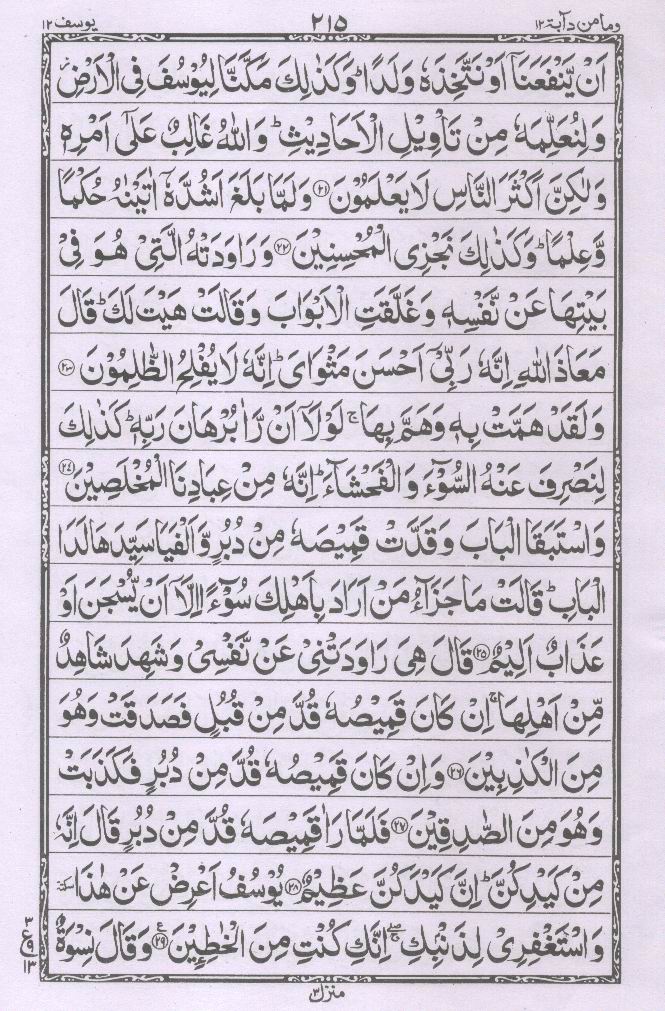 وما من دآبة ١٢ ٢١٥ يوسف ١٢
اَنْ يَّنْفَعَنَاۤ اَوْ نَتَّخِذَهٗ وَلَدًا ؕ وَكَذٰلِكَ مَكَّنَّا لِيُوْسُفَ فِى الْاَرْضِ ز
وَلِنُعَلِّمَهٗ مِنْ تَاْوِيْلِ الْاَحَادِيْثِ ؕ وَاللّٰهُ غَالِبٌ عَلٰٓى اَمْرِهٖ
وَلٰكِنَّ اَكْثَرَ النَّاسِ لَا يَعْلَمُوْنَ ﴿٢١﴾ وَلَمَّا بَلَغَ اَشُدَّهٗۤ اٰتَيْنٰهُ حُكْمًا
وَّعِلْمًا ؕ وَكَذٰلِكَ نَجْزِى الْمُحْسِنِيْنَ ﴿٢٢﴾ وَرَاوَدَتْهُ الَّتِىْ هُوَ فِىْ
بَيْتِهَا عَنْ نَّفْسِهٖ وَغَلَّقَتِ الْاَبْوَابَ وَقَالَتْ هَيْتَ لَكَ ؕ قَالَ
مَعَاذَ اللّٰهِ اِنَّهٗ رَبِّىْۤ اَحْسَنَ مَثْوَاىَ ؕ اِنَّهٗ لَا يُفْلِحُ الظّٰلِمُوْنَ ﴿٢٣﴾
وَلَقَدْ هَمَّتْ بِهٖ وَهَمَّ بِهَا ۚ لَوْلَاۤ اَنْ رَّاٰ بُرْهَانَ رَبِّهٖ ؕ كَذٰلِكَ
لِنَصْرِفَ عَنْهُ السُّوْٓءَ وَالْفَحْشَآءَ ؕ اِنَّهٗ مِنْ عِبَادِنَا الْمُخْلَصِيْنَ ﴿٢٤﴾
وَاسْتَبَقَا الْبَابَ وَقَدَّتْ قَمِيْصَهٗ مِنْ دُبُرٍ وَّاَلْفَيَا سَيِّدَهَا لَدَا
الْبَابِ ؕ قَالَتْ مَا جَزَآءُ مَنْ اَرَادَ بِاَهْلِكَ سُوْٓءًا اِلَّاۤ اَنْ يُّسْجَنَ اَوْ
عَذَابٌ اَلِيْمٌ ﴿٢٥﴾ قَالَ هِىَ رَاوَدَتْنِىْ عَنْ نَّفْسِىْ وَشَهِدَ شَاهِدٌ
مِّنْ اَهْلِهَا ۚ اِنْ كَانَ قَمِيْصُهٗ قُدَّ مِنْ قُبُلٍ فَصَدَقَتْ وَهُوَ
مِنَ الْكٰذِبِيْنَ ﴿٢٦﴾ وَاِنْ كَانَ قَمِيْصُهٗ قُدَّ مِنْ دُبُرٍ فَكَذَبَتْ
وَهُوَ مِنَ الصّٰدِقِيْنَ ﴿٢٧﴾ فَلَمَّا رَاٰ قَمِيْصَهٗ قُدَّ مِنْ دُبُرٍ قَالَ اِنَّهٗ
مِنْ كَيْدِكُنَّ ؕ اِنَّ كَيْدَكُنَّ عَظِيْمٌ ﴿٢٨﴾ يُوْسُفُ اَعْرِضْ عَنْ هٰذَا سكتة
وَاسْتَغْفِرِىْ لِذَنْۢبِكِ ۖۚ اِنَّكِ كُنْتِ مِنَ الْخٰطِـِٕيْنَ ﴿٢٩﴾ ع وَقَالَ نِسْوَةٌ
٣
ع
٩
١٣
منزل ٣